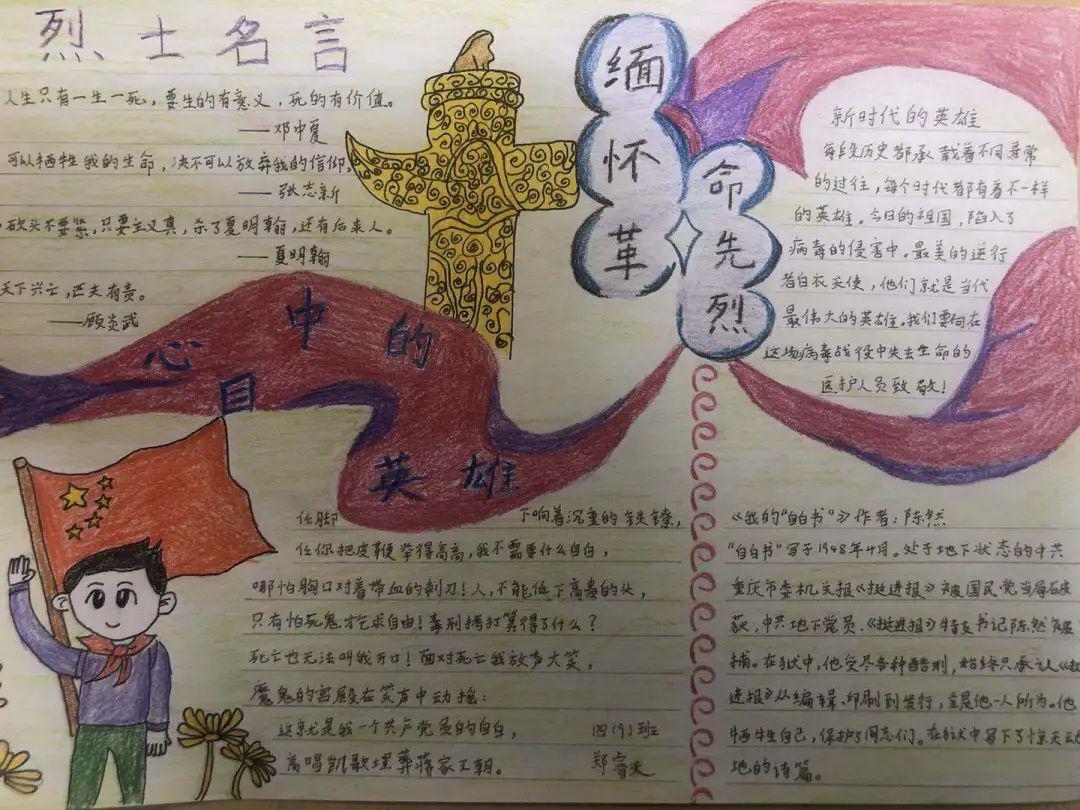 烈士名言
人生只有一生一死，要生的有意义，死的有价值。
——邓中夏
可以牺牲我的生命，决不可以放弃我的信仰。
——张志新
砍头不要紧，只要主义真，杀了夏明翰，还有后来人。
——夏明翰
天下兴亡，匹夫有责。
——顾炎武
缅怀革
命先烈
新时代的英雄
每段历史都承载着不同寻常
的过往，每个时代都有着不一样
的英雄。今日的祖国，陷入了
病毒的侵害中。最美的逆行
者白衣天使，他们就是当代
最伟大的英雄。我们要向在
这场病毒战役中失去生命的
医护人员致敬！
心目中的
英雄
任脚下响着沉重的铁镣，
任你把皮鞭举得高高，我不需要什么自白，
哪怕胸口对着带血的刺刀！人，不能低下高贵的头，
只有怕死鬼才乞求自由！毒刑拷打算得了什么？
死亡也无法叫我开口！面对死亡我放声大笑，
魔鬼的宫殿在笑声中动摇：
这就是我一个共产党员的自白，
高唱凯歌埋葬蒋家王朝。
四（9）班
郑睿天
《我的“自白书”》作者：陈然
“自白书”写于1948年4月。处于地下状态的中共
重庆市委机关报《挺进报》被国民党当局破
获，中共地下党员、《挺进报》特支书记陈然被
捕。在狱中，他受尽各种酷刑，始终只承认《挺
进报》从编辑、印刷到发行，全是他一人所为。他
牺牲自己，保护了同志们。在狱中写下了惊天动
地的诗篇。